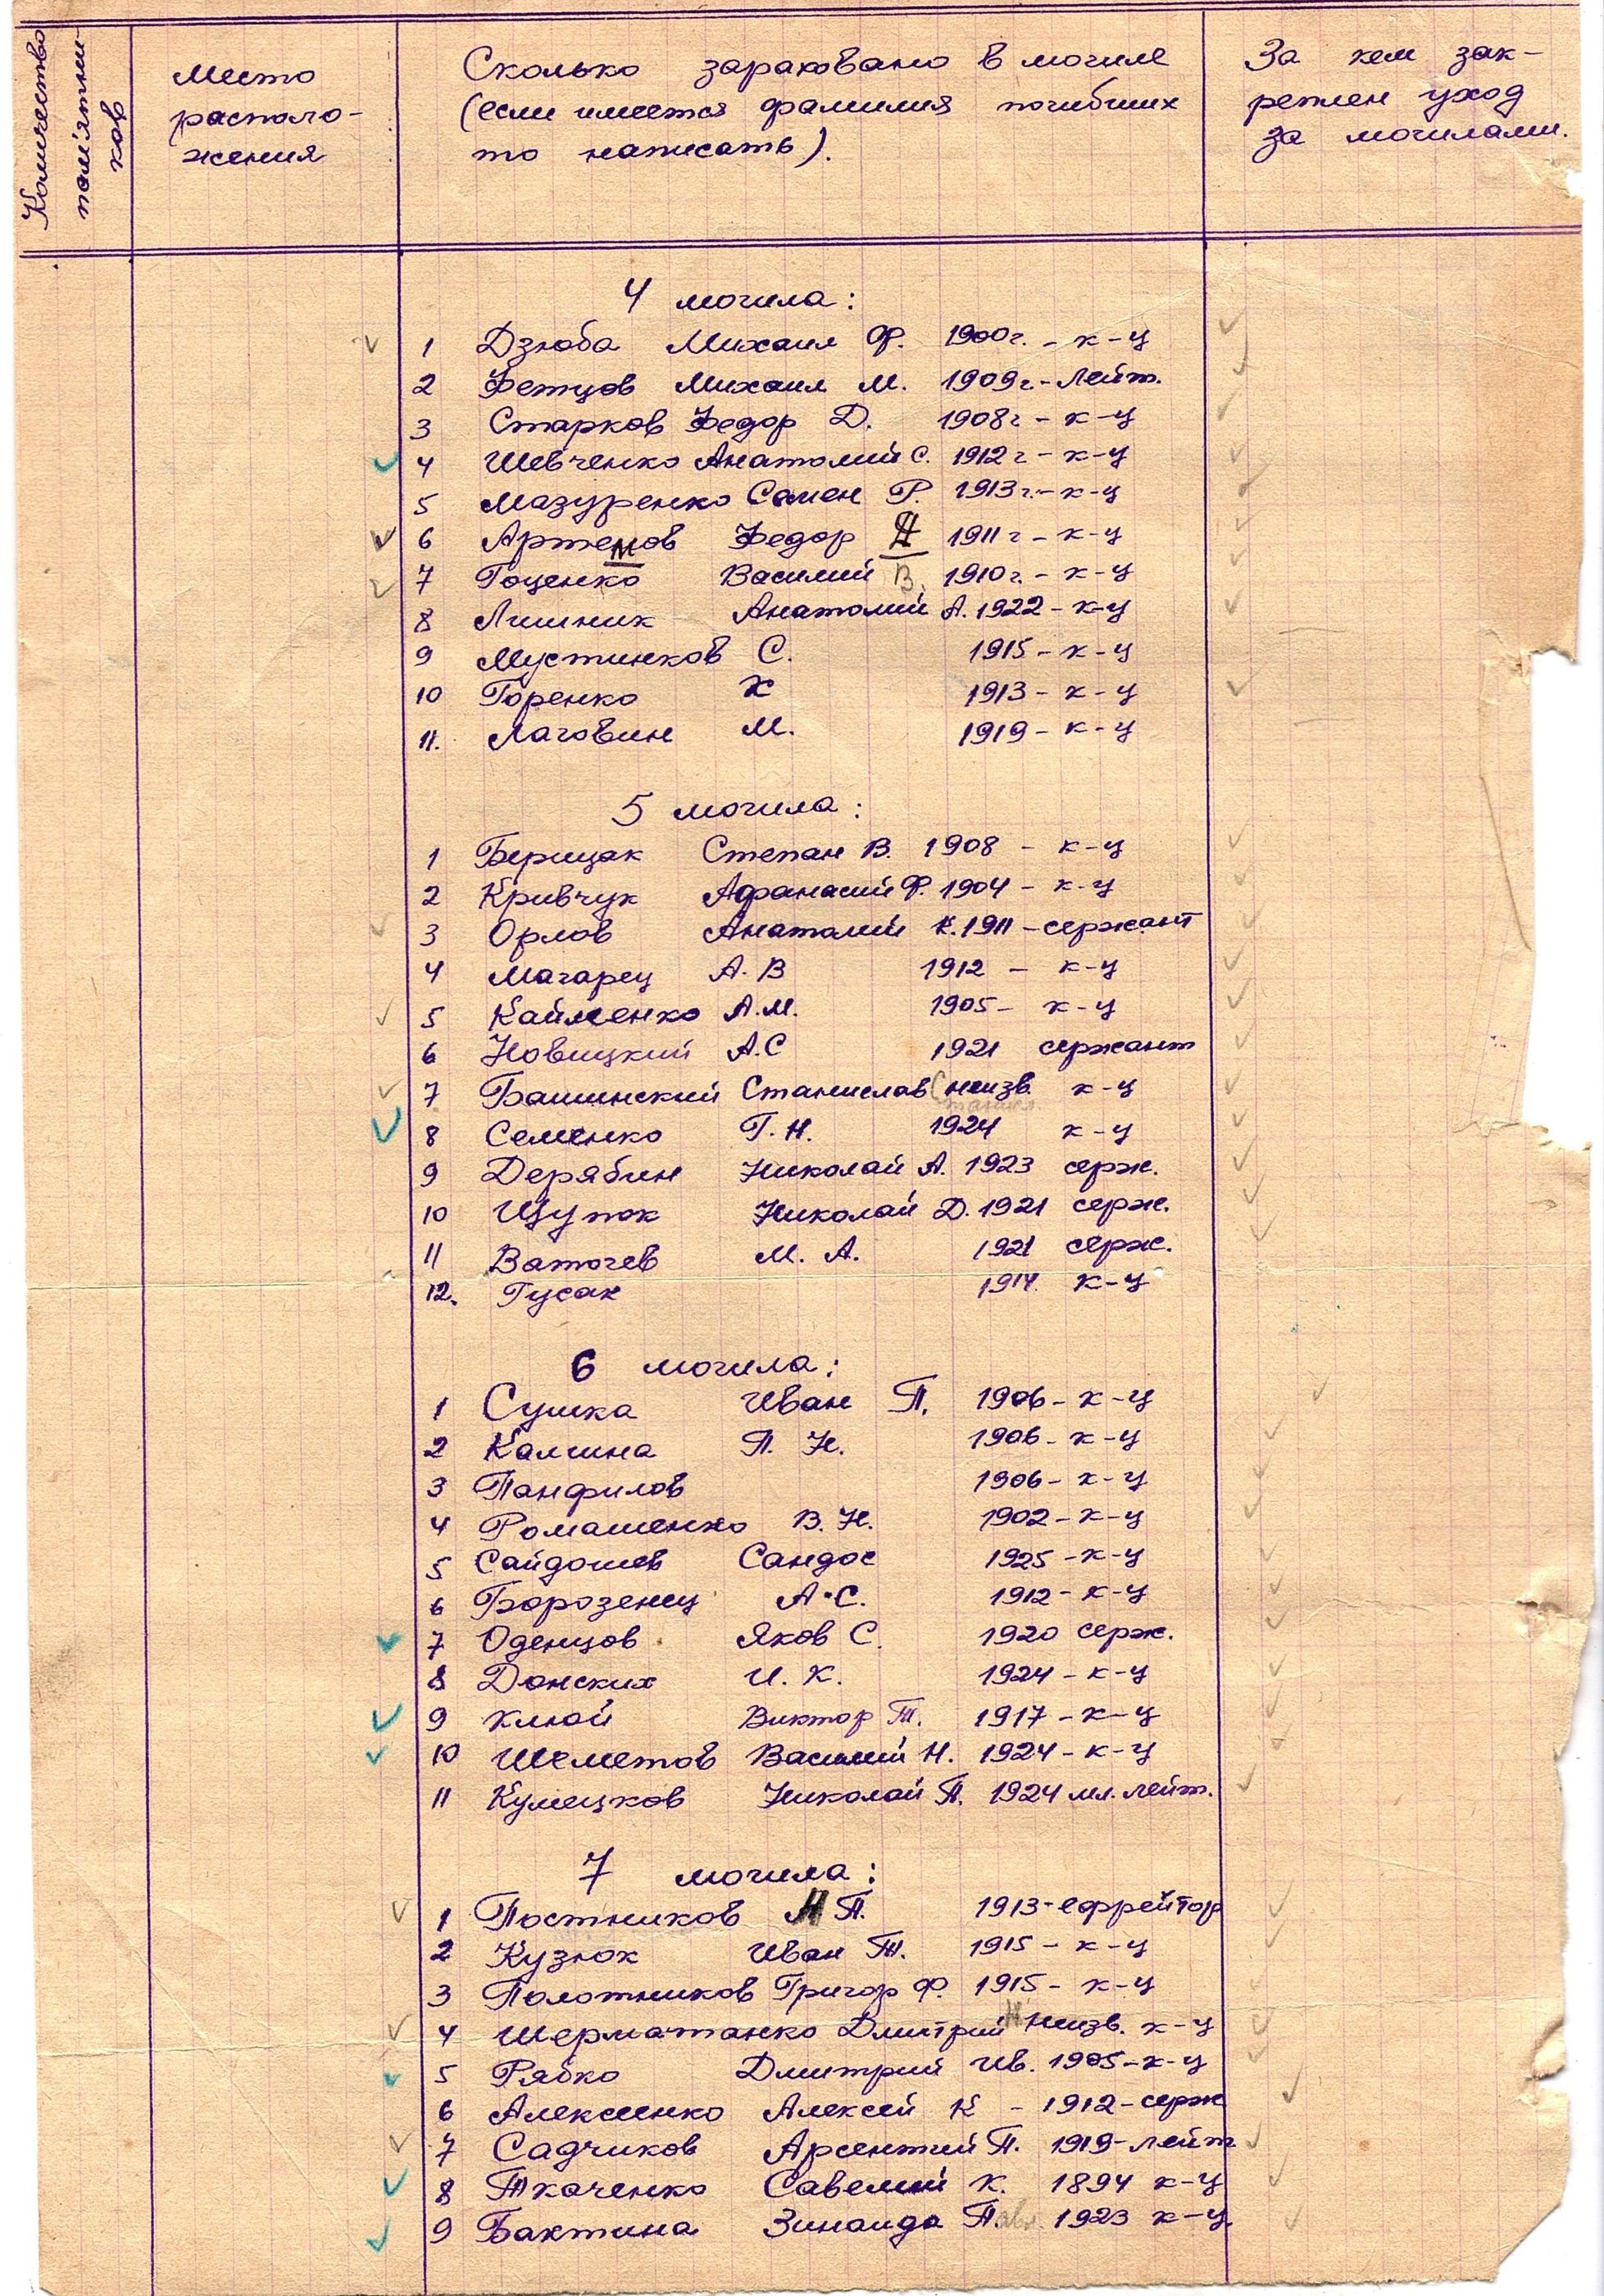 Количество памятников
Место расположения
Сколько зараховано в могиле
(если имеется фамилия погибших
то написать).
За кем зак-
реплен уход
за могилами.
4 могила:
1 Дзюба Михаил Ф. 1900г. - к-ц
2 Фетцов Михаил М. 1909г - лейт.
3 Старков Федор Д. 1908г - к-ц
4 Шевченко Анатолий С. 1912г - к-ц
5 Мазуренко Семен Р. 1913г. - к-ц
6 Артемов Федор Д 1911г - к-ц
7 Гоценко Василий В. 1910г. - к-ц
8 Лишник Анатолий А. 1922 - к-ц
9 Мустинков С. 1915 - к-ц
10 Горенко Х 1913 - к-ц
11. Лаговин М. 1919 - к-ц
5 могила:
1 Берицак Степан В. 1908 - к-ц
2 Кривчук Афанасий Ф. 1904 - к-ц
3 Орлов Анатолий К. 1911 - сержант
4 Магарец А. В 1912 - к-ц
5 Кайменко А.М. 1905 - к-ц
6 Новицкий А.С 1921 сержант
7 Башинский Станислав С неизв. к-ц
8 Семенко Г. Н. 1924 к-ц
9 Дерябин Николай А. 1923 серж.
10 Щупок Николай Д. 1921 серж.
11 Ваточев М. А. 1921 серж.
12. Гусак 1914. к-ц
6 могила:
1 Сушка Иван П. 1906 - к-ц
2 Калина П. Н. 1906 - к-ц
3 Панфилов 1906 - к-ц
4 Ромашенко В. Н. 1902 - к-ц
5 Сайдошев Сандос 1925 - к-ц
6 Борозенец А.С. 1912 - к-ц
7 Оденцов Яков С. 1920 серж.
8 Донских И. К. 1924 - к-ц
9 Клюй Виктор Т. 1917 - к-ц
10 Шеметов Василий Н. 1924 - к-ц
11 Кумецков Николай П. 1924 мл. лейт.
7 могила:
1 Постников Н П. 1913 - ефрейтор
2 Кузюк Иван Т. 1915 - к-ц
3 Полотников Григор Ф. 1915 - к-ц
4 Шерматанко Дмитрий Н неизв. к-ц
5 Рябко Дмитрий Ив. 1905 - к-ц
6 Алексеенко Алексей К - 1912 - серж
7 Садчиков Арсентий П. 1919 - лейт
8 Ткаченко Савелий К. 1894 к-ц
9 Бактина Зинаида Павл. 1923 к-ц.